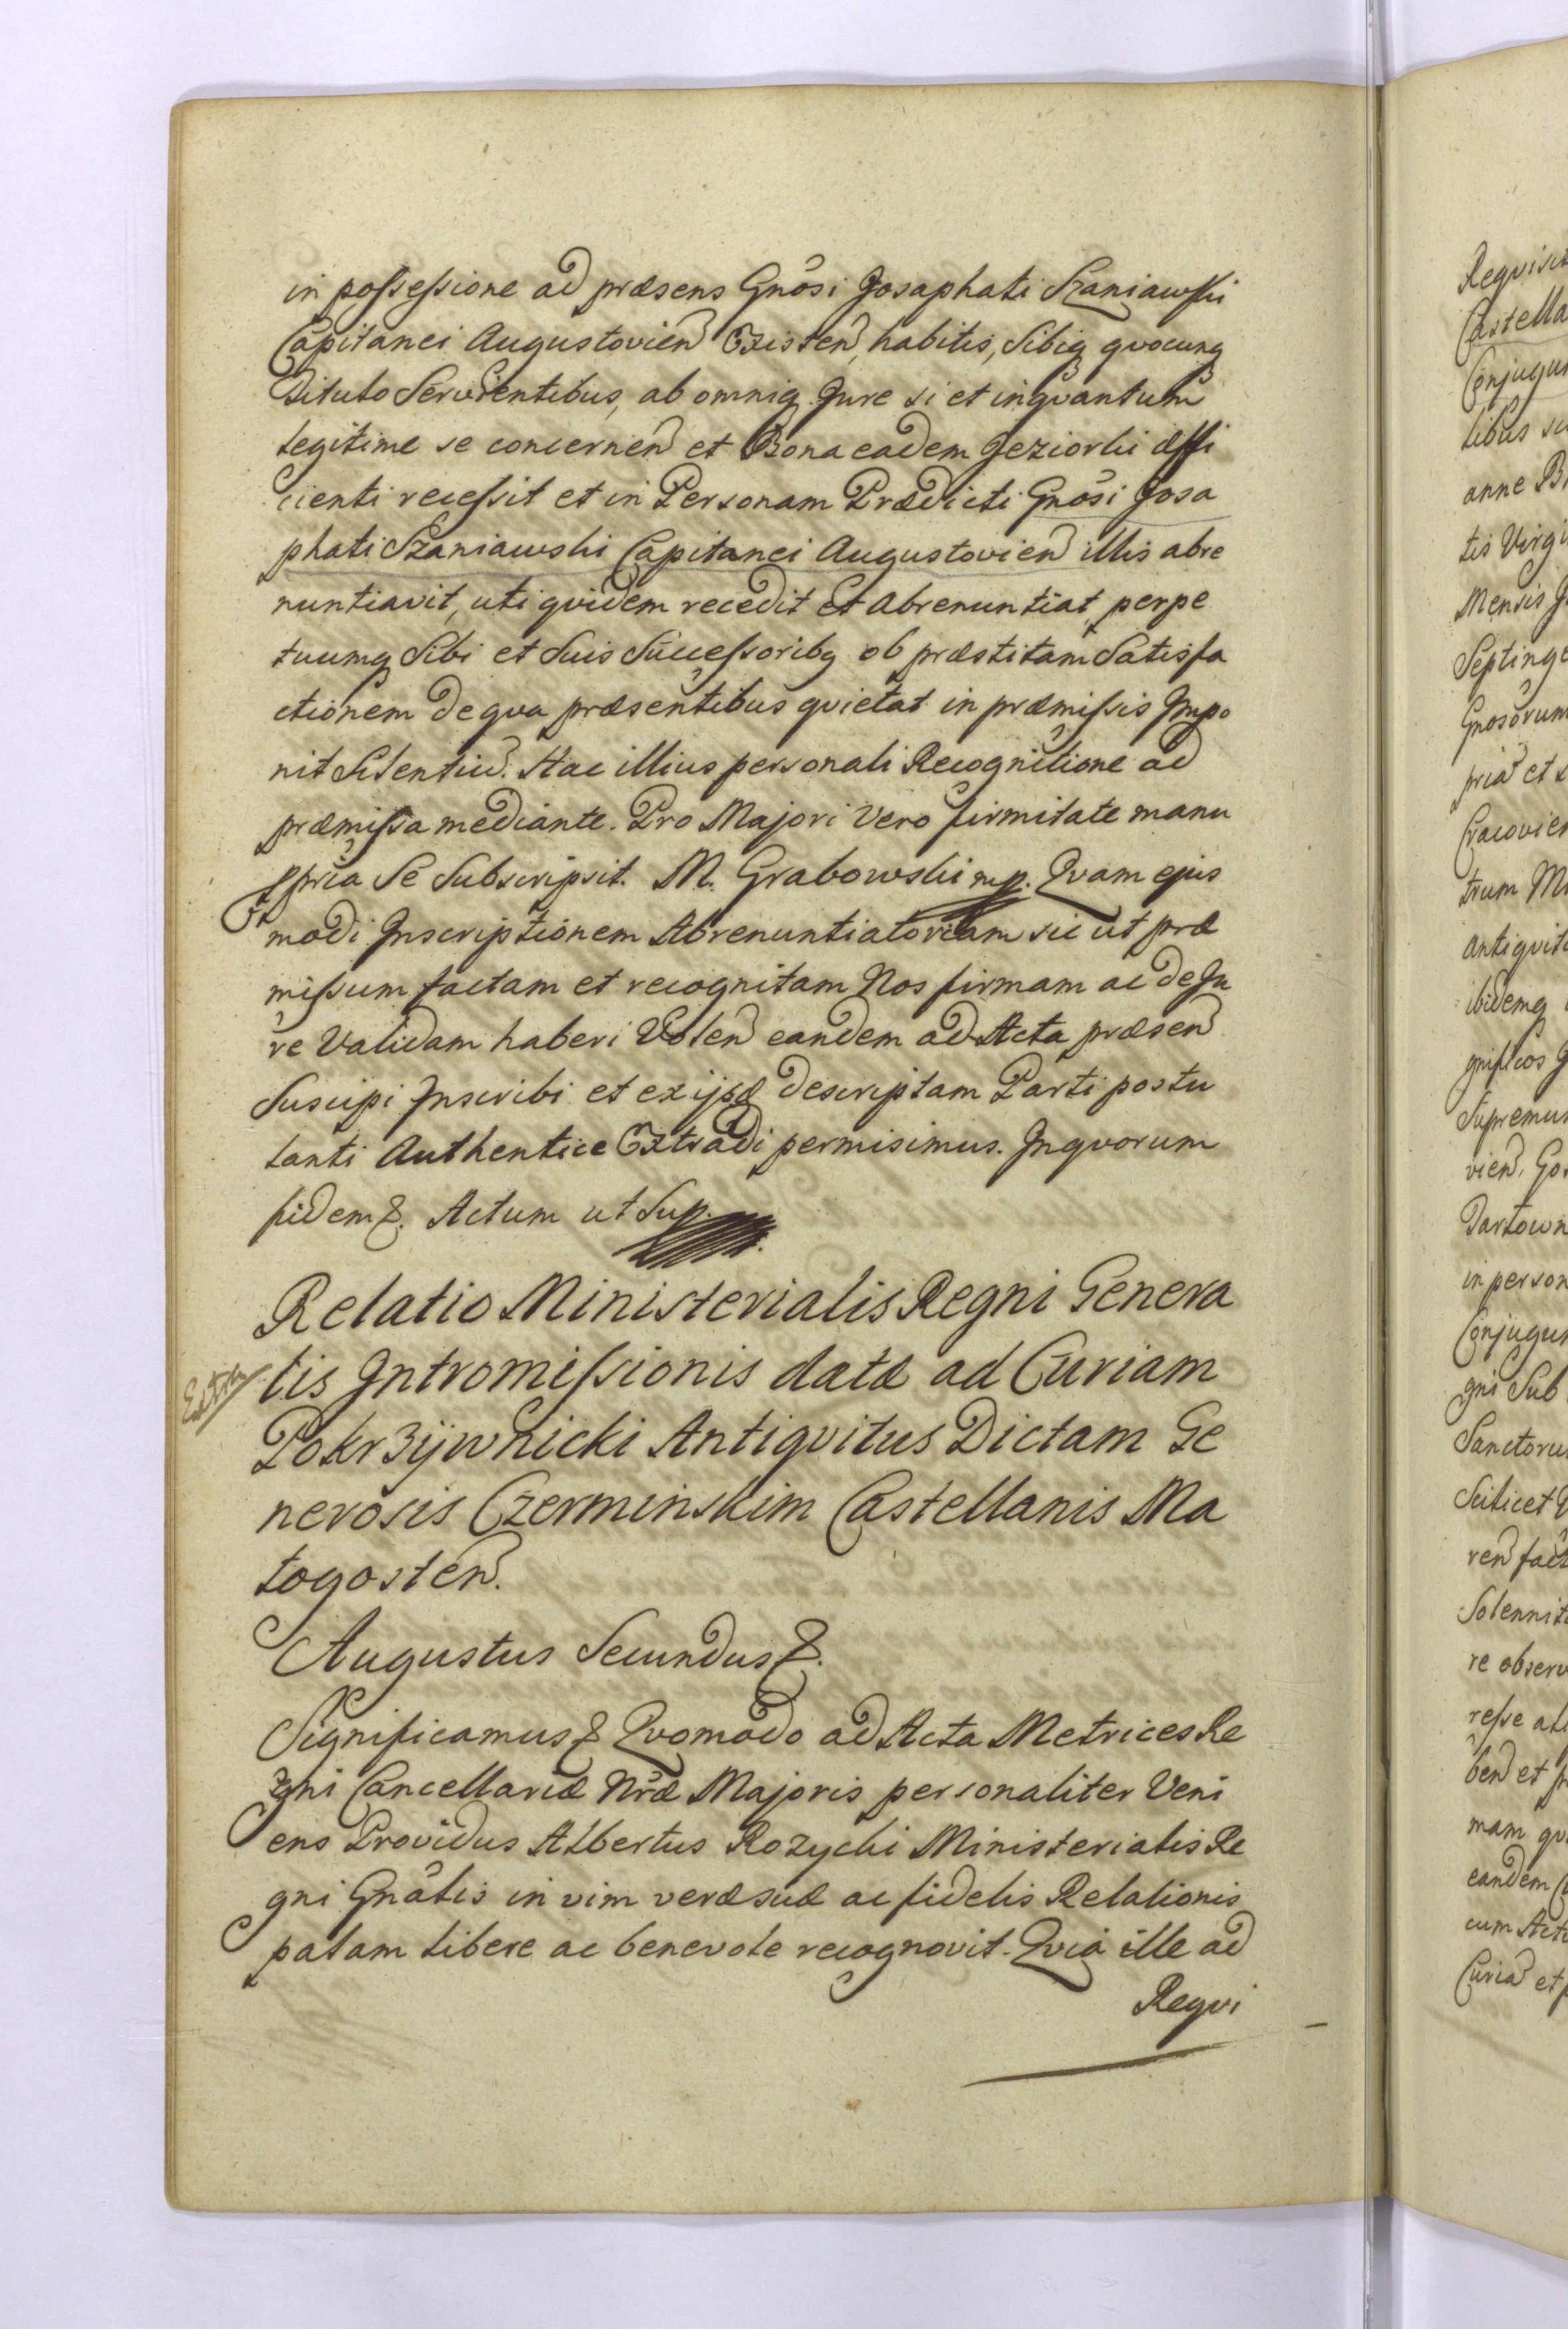 in possessione ad præsens Gnôsi Josaphati Szaniawski
Capitanei Augustovien Existen, habitis, Sibiq quocunq
Titulo Servientibus, ab omniq Jure si et inqvantum
legitime se concernen et Bona eadem Jeziorki affi
cienti recessit et in Personam Prædicti Gnôsi Josa
phati Szaniawski Capitanei Augustovien illis abre
nuntiavit, uti qvidem recedit et Abrenuntiat, perpe
tuumq Sibi et Suis Successoribq ob præstitam Satisfa
ctionem de qva præsentibus qvietat in præmissis Impo
nit Silentiu. Hac illius personali Recognitione ad
præmissa mediante. Pro Majori Vero firmitate manu
ppria Se Subscripsit. M. Grabowski mp. Qvam ejus
modi Inscriptionem Abrenuntiatoriam sic ut præ
missum factam et recognitam Nos firmam ac de Ju
re Validam haberi Volen eandem ad Acta præsen
Suscipi Inscribi et ex ijsd descriptam Parti postu
lanti Authentice Extradi permisimus. In qvorum
fidem &. Actum ut Sup.
Relatio Ministerialis Regni Genera
lis Intromissionis datæ ad Curiam
Pokrzijwnicki Antiqvitus Dictam Ge
nerosis Czerminskim Castellanis Ma
logosten.
Extra
Augustus Secundus &.
Significamus & Qvomodo ad Acta Metrices Re
gni Cancellariæ Nræ Majoris personaliter Veni
ens Providus Albertus Rozycki Ministerialis Re
gni Gnâlis in vim veræ suæ ac fidelis Relationis
palam libere ac benevole recognovit. Qvia ille ad
Reqvi
Reqvisit
Castella
Conjugu
libus
anne
tis Virgi
Mensis
Septinge
Gnosorum
pria et
Cracovien
trum
antiqvit
ibidemq
gnificos
Supremu
vien
in person
Conjugu
gni Sub
Sanctoru
Scilicet
ren fact
Solennit
re observ
resse
ben et
mam qv
eandem
cum Act
Curia et